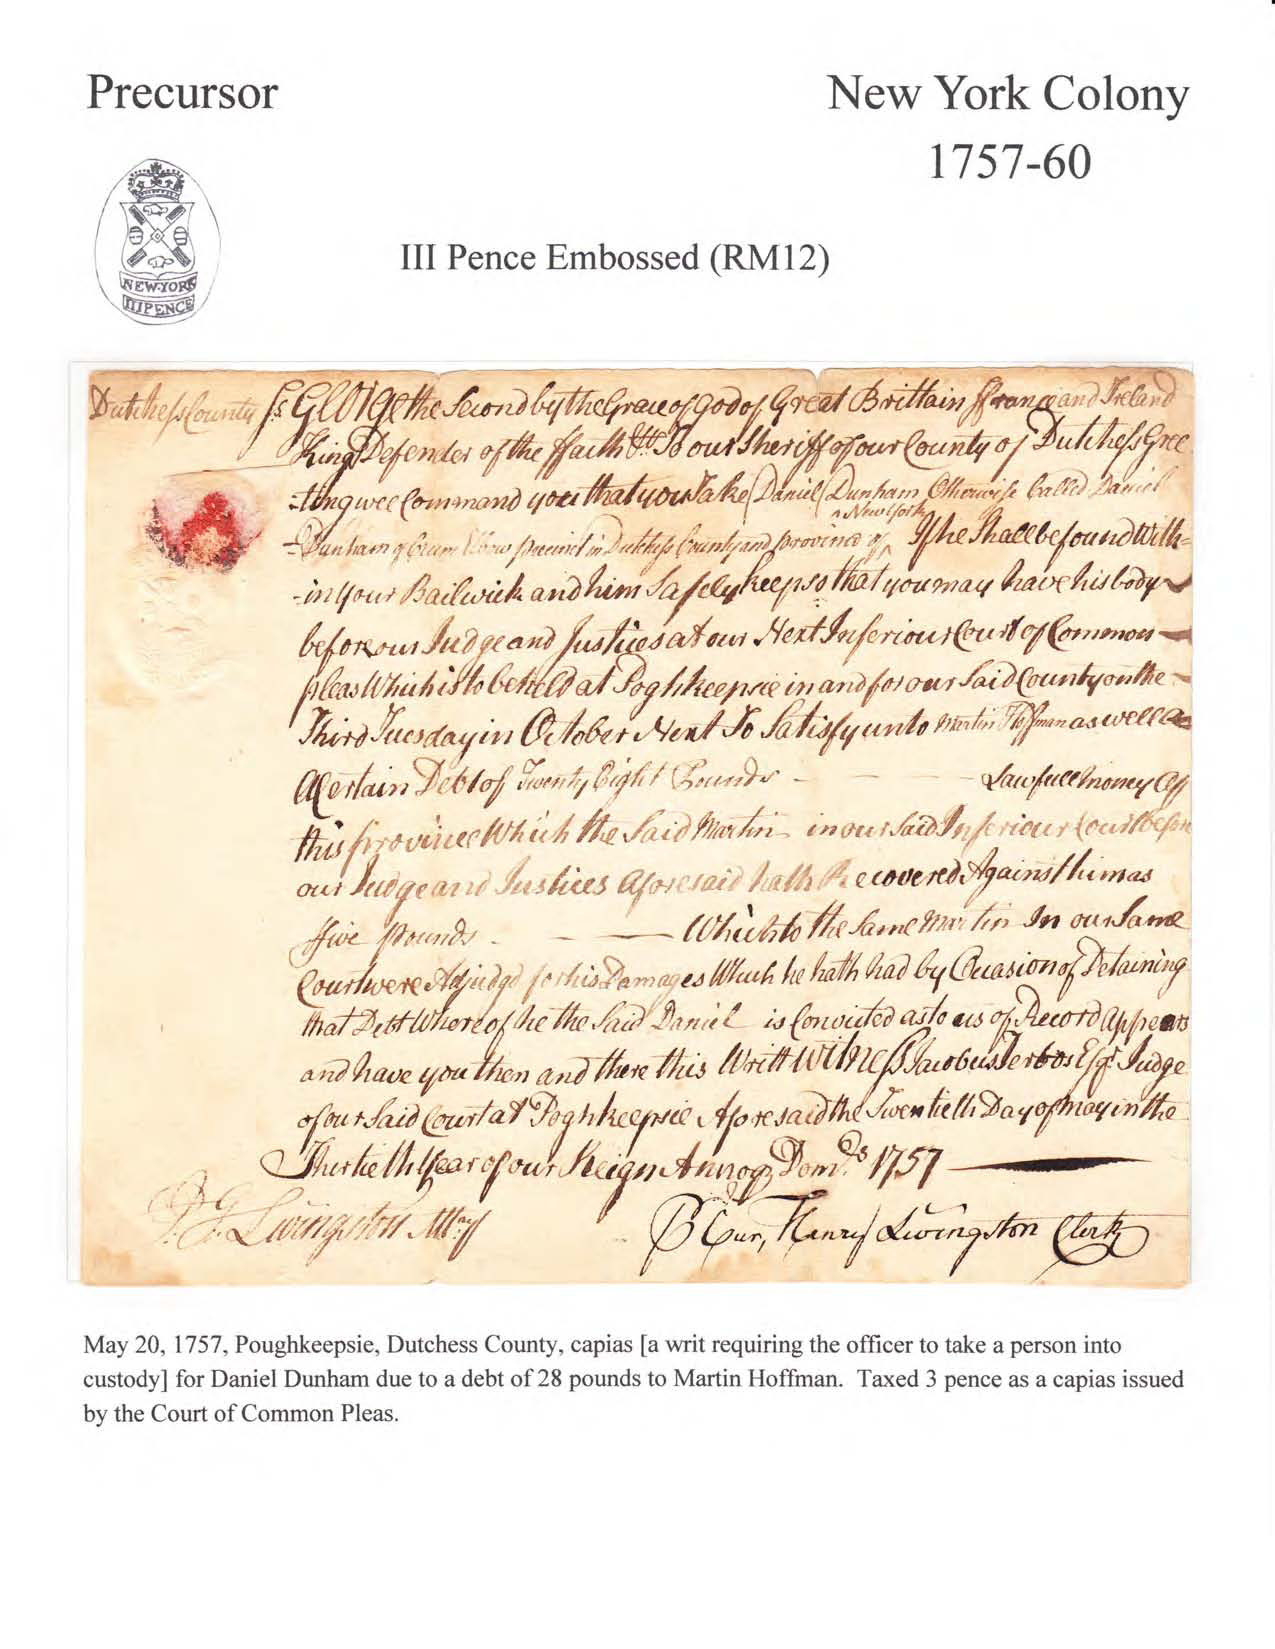 Precursor
New York Colony
1757-60
NEW-YORK
III PENCE
III Pence Embossed (RM12)
Dutchess County Ss George the Second by the Grace of God of Great Brittain ffrance and Ireland
King Defender of the ffaith &c To our Sheriff of our County of Dutchess Gree
=ting wee Command you that you Take Daniel Dunham Otherwise Called Daniel
New York
=Dunham of Crum Elbow precinct in Dutchess County and province of If he Shall be found With=
-in your Bailwick and him Safely keep so that you may have his body
before our Judge and Justices at our Next Inferiour Court of Common
pleas Which is to be held at Poghkeepsie in and for our Said County on the
Third Tuesday in October Next To Satisfy unto Martin Hoffman as well a
Certain Debt of Twenty Eight Pounds - - - Lawfull money off
this province Which the Said Martin in our Said Inferiour Court before
our Judge and Justices Aforesaid hath Recovered Against him as
ffive pounds - - - Which to the Same Martin In our Same
Court were Adjudgd for his Damages Which he hath had by Occasion of Detaining
that Debt Whereof he the Said Daniel is Convicted as to us of Record Appears
and have you then and there this Writt Witness Jacobus Terbos Esqr. Judge
of our Said Court at Poghkeepsie Aforesaid the Twentieth Day of may in the
Thirtieth Year of our Reign Annoq Dom. 1757
Livingston Atty
P Cur, Henry Livingston Clerk
May 20, 1757, Poughkeepsie, Dutchess County, capias [a writ requiring the officer to take a person into
custody] for Daniel Dunham due to a debt of 28 pounds to Martin Hoffman. Taxed 3 pence as a capias issued
by the Court of Common Pleas.